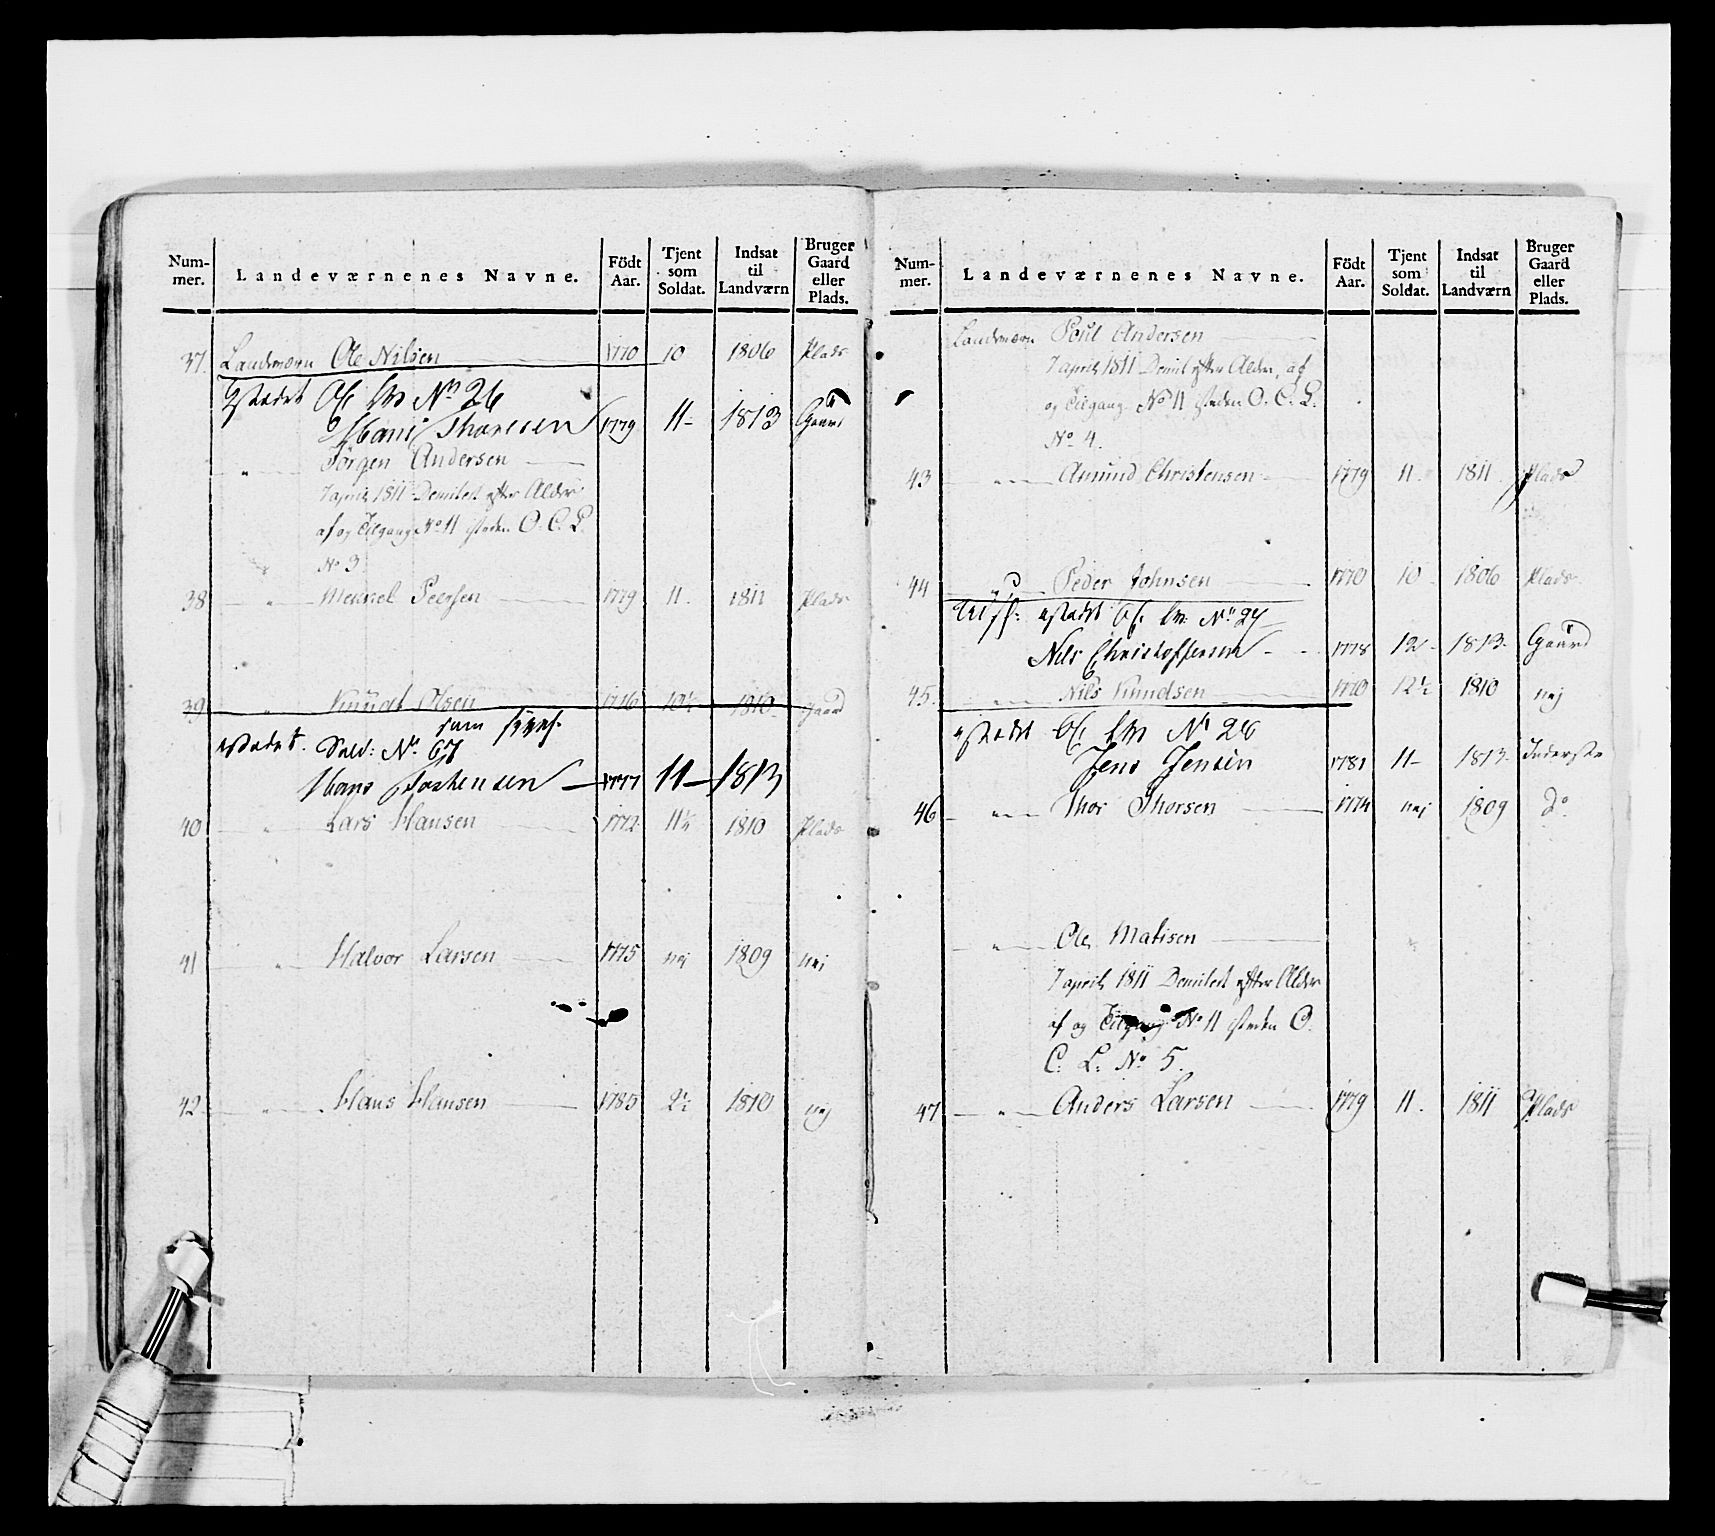 Num-
mer.
Landeværnenes Navne.
Födt
Aar.
Tjent
som
Soldat.
Indsat
til
Landværn
Bruger
Gaard
eller
Plads.
37. Landværn Ole Nilsen 1770 10 1806 Plads
No 26
Hans Thoresen 1779 11 1813 Gaard
" Jørgen Andersen
7 april 1811 Demitert efter Alder
af og Tilgang No 11 steden O. C. L.
No 3
38 " Peersen 1779 11. 1811 Plads
39 " Knudt Olsen 1776 10½ 1810 Gaard
Sold: No 67
Hans 1777 11 1813
40 " Lars Hansen 1772 11½ 1810 Plads
41 " Halvor Larsen 1775 nej 1809 nej
42 " Hans Hansen 1785 2½ 1810 nej
Num-
mer.
Landeværnenes Navne.
Födt
Aar.
Tjent
som
Soldat.
Indsat
til
Landværn
Bruger
Gaard
eller
Plads.
Landværn Poul Andersen
7 april 1811 Demit efter Alder, af
og Tilgang No 11 steden O. C. L.
No 4.
43 " Amund Christensen 1779 11. 1811. Plads
44 " Peder Johnsen 1770 10 1806 Plads
No 27
Nils Christophersen 1778 12 1813 Gaard
45. " Nils Knudsen 1770 12½ 1810 nej
No 28
Jens Jensen 1781 11 1813 Inderste
46 " Thor Thorsen 1774 nej 1809 do
" Ole Matisen
7 april 1811 Demitert efter Alder
af og Tilgang No 11 steden O.
C. L. No 5.
47 " Anders Larsen 1779 11. 1811 Plads